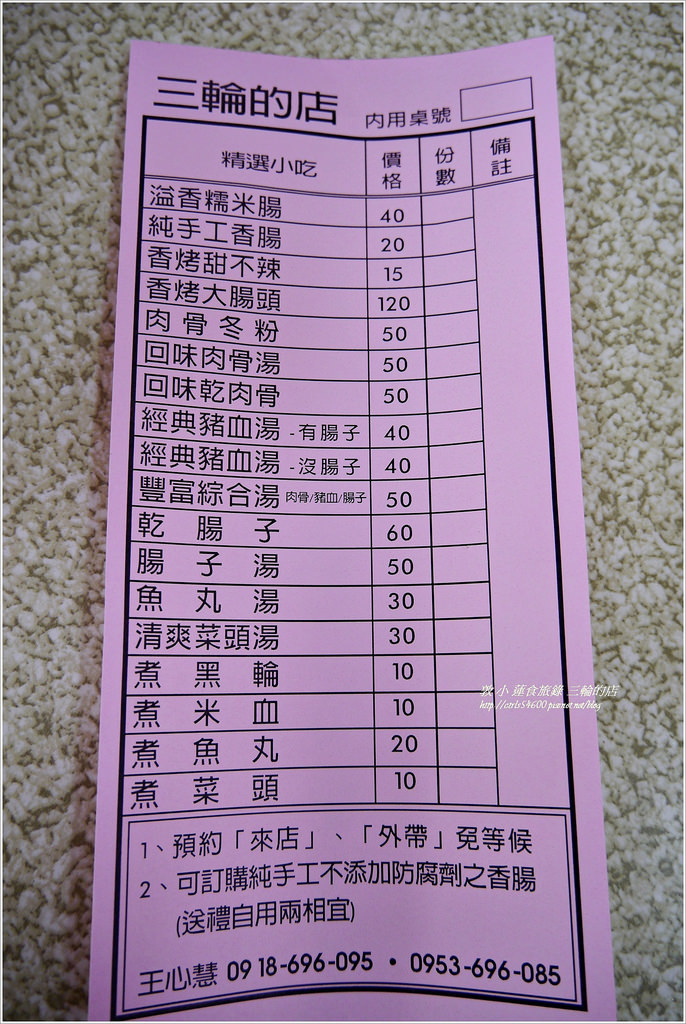 三輪的店 內用桌號
精選小吃 價格 份數 備註
溢香糯米腸 40
純手工香腸 20
香烤甜不辣 15
香烤大腸頭 120
肉骨冬粉 50
回味肉骨湯 50
回味乾肉骨 50
經典豬血湯 -有腸子 40
經典豬血湯 -沒腸子 40
豐富綜合湯 肉骨/豬血/腸子 50
乾腸子 60
腸子湯 50
魚丸湯 30
清爽菜頭湯 30
煮黑輪 10
煮米血 10
煮魚丸 20
煮菜頭 10
1、預約「來店」、「外帶」免等候
2、可訂購純手工不添加防腐劑之香腸
(送禮自用兩相宜)
王心慧 0918-696-095 • 0953-696-085
小蓮食旅錄 三輪的店